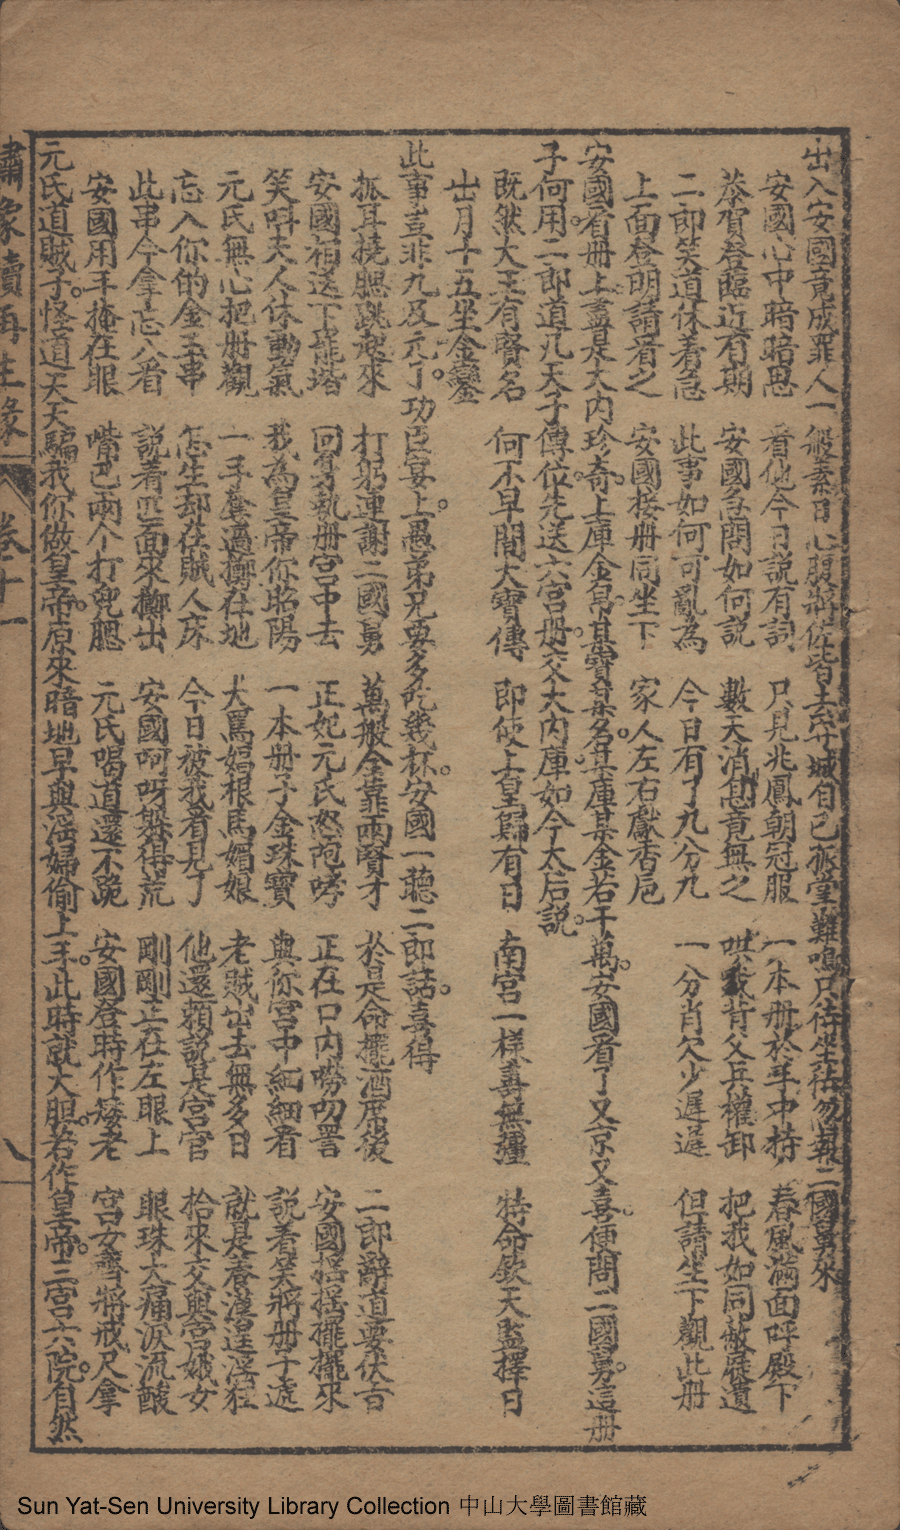 出入安國竟成罪人一般素日心腹將佐皆去守城自己孤堂難鳴只待坐毡勿報二國舅來
安國心中暗暗思 看他今日説有詞 只見兆鳳朝冠服 一本册於手中持 春風滿面呼殿下
恭賀登臨近有期 安國急問如何説 數天消息竟無之 哄我背父兵權卸 把我如同敝屣遺
二郎笑道休着急 此事如何可亂為 今日有了九分九 一分肖欠少遲遲 但請坐下觀此册
上面登明請看之 安國接册同坐下 家人左右獻香卮
安國看册上盡是大内珍奇上庫金帛某寳某名某庫某金若干萬安國看了又京又喜便問二國舅這册
子何用二郎道凡天子傳位先送六宫册交大内庫如今太后説
既然大王有賢名 何不早開大寶傳 即使上皇歸有日 南宫一様壽無疆 特命欽天監擇日
出月十五坐金鑾
此事豈非九及元了功臣宴上愚弟兄要多吃幾杯安國一聽二郎話喜得
抓耳撓腮跳起來 打躬連謝二國舅 萬般全靠兩賢才 於是命擺酒席後 二郎辭道要伏百
安國相送下龍堦 回身執册宫中去 正妃元氏怒咆哮 正在口内嘮叨詈 安國摇摇擺擺來
笑呌夫人休動氣 我為皇帝你昭陽 一本册子金珠寶 與你宫中細細看 説着笑將册子遞
元氏無心把册觀 一手奪過擲在地 大罵娼根馬媚娘 老賊出去無多日 就是養漢逞淫狂
忘入你的金玉串 怎生却在賊人床 今日被我看見了 他還賴説是宫官 拾來交與宫娥女
此串今拿忘八看 説着匹面來擲出 安國呵呀躲得荒 剛剛正在左眼上 眼珠大痛淚流酸
安國用手掩在眼 嘴巴兩个打兜腮 元氏喝道還不跪 安國登時作矮老 宫女齊將戒尺拿
元氏道賊子怪道天天騙我你做皇帝原來暗地早與淫婦偷上手此時就大胆若作皇帝三宫六院自然
繡像續再生緣 卷十一 八
Sun Yat-Sen University Library Collection 中山大學圖書館藏